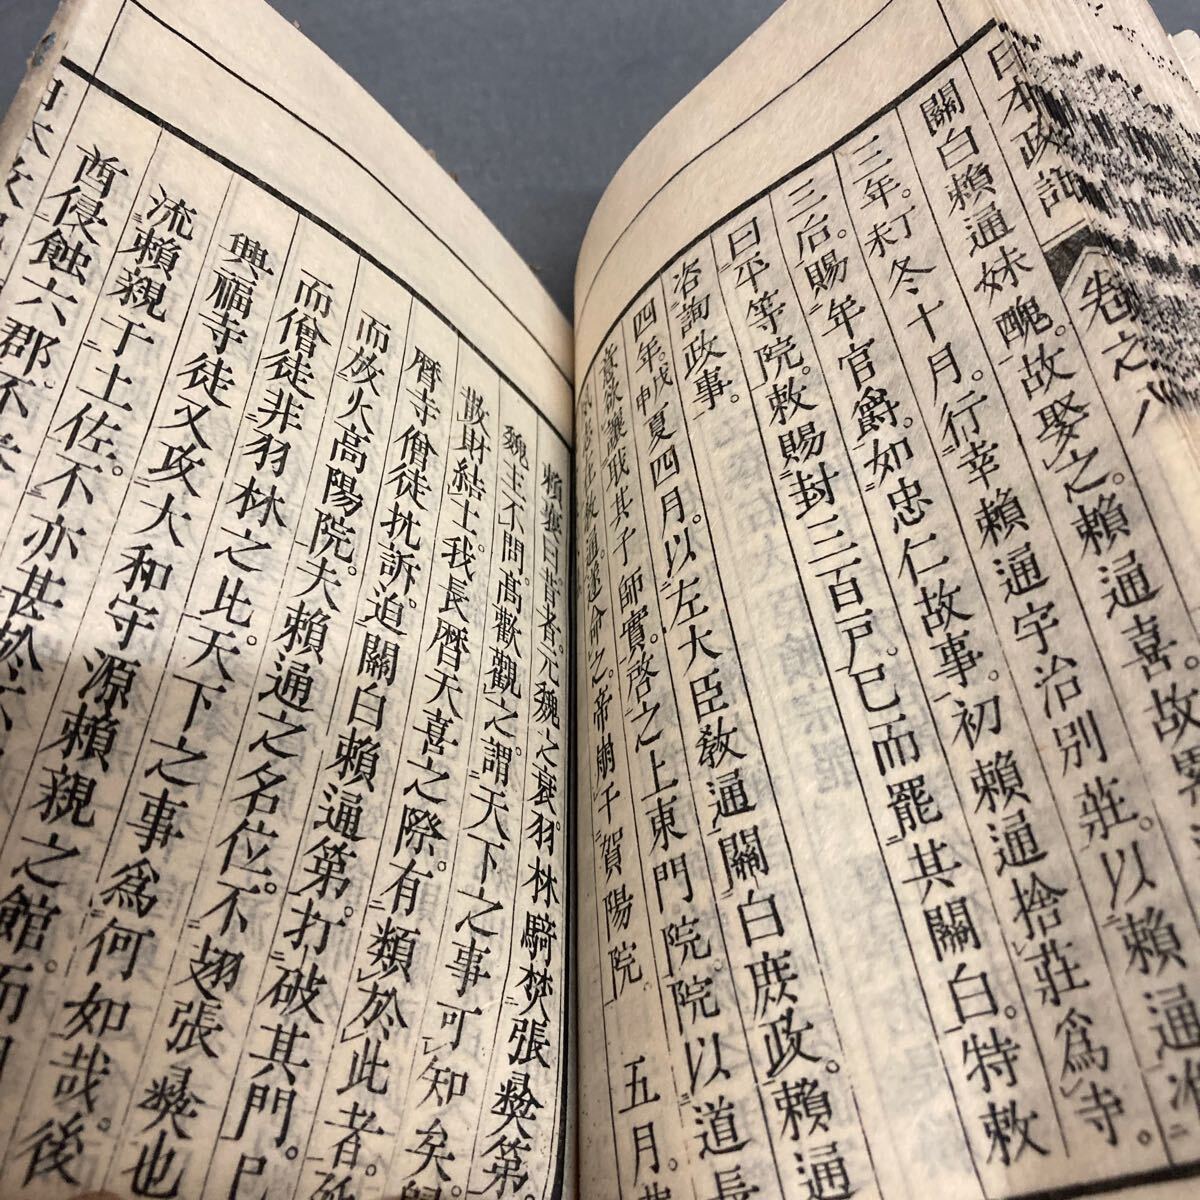 日本政記
卷之八
關白賴通妹醜。故娶之。賴通喜。故
三年。丁未冬十月。行幸賴通宇治別莊。以賴通准
三后。賜年官爵。如忠仁故事。初賴通捨莊爲寺。
曰平等院。敕賜封三百戸。已而罷其關白。特敕
咨詢政事。
四年。戊申夏四月。以左大臣敎通關白庶政。賴通
嘗欲讓職其子師實。啓之上東門院。院以道長
之。帝崩于賀陽院。 五月。
賴襄曰。昔者。元魏之衰。羽林騎焚張彝第。
魏主不問。高歡觀之。謂天下之事可知矣。歸
散財結士。我長曆天喜之際。有類於此者。延
曆寺僧徒抗訴。迫關白賴通第。打破其門。已
而放火高陽院。夫賴通之名位。不翅張彝也
而僧徒非羽林之比。天下之事爲何如哉。後
興福寺徒又攻大和守源賴親之館。而
流賴親于土佐。不亦甚於
酋侵蝕六郡。不